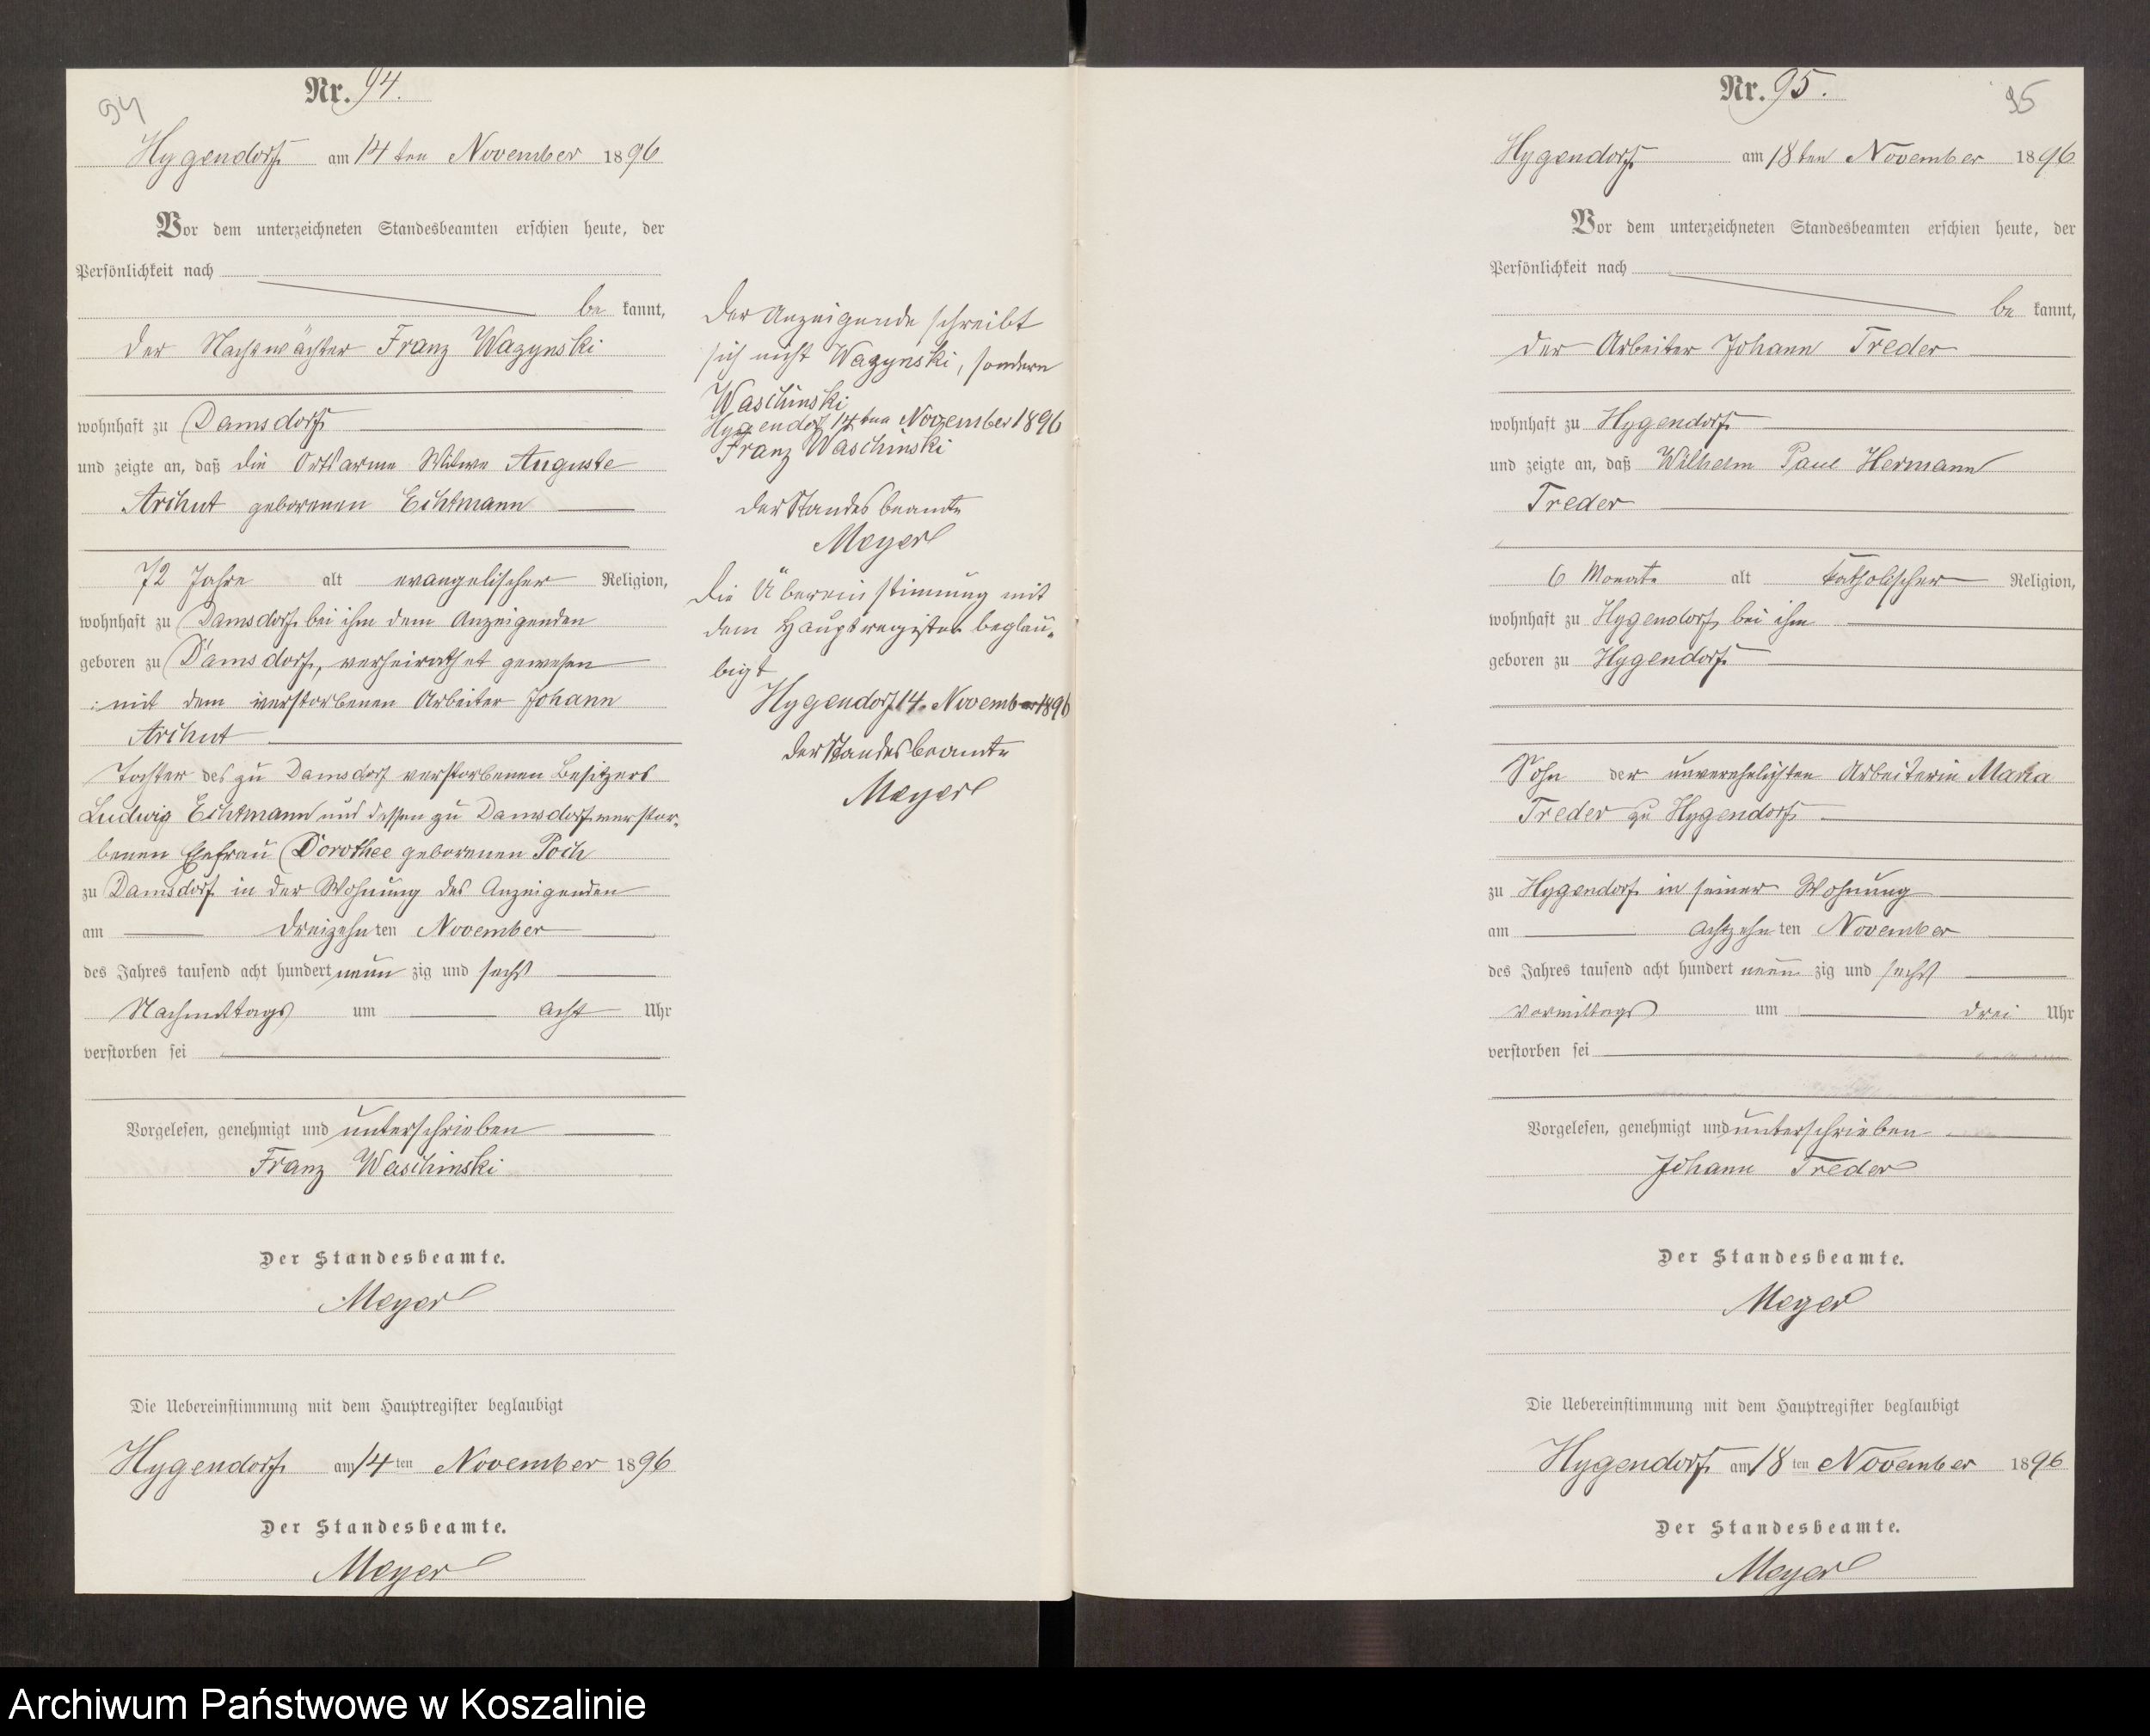 94
Nr. 94.
Hygendorf am 14 ten November 1896
Vor dem unterzeichneten Standesbeamten erschien heute, der
Persönlichkeit nach
be kannt,
der Nachtwächter Franz Wazynski
wohnhaft zu Damsdorf
und zeigte an, daß die Ortsarme Witwe Auguste
Archut geborenen Echtmann
72 Jahre alt evangelischer Religion,
wohnhaft zu Damsdorf bei ihm dem Anzeigenden
geboren zu Damsdorf, verheirathet gewesen
mit dem verstorbenen Arbeiter Johann
Archut
Tochter des zu Damsdorf verstorbenen Besitzers
Ludwig Echtmann und dessen zu Damsdorf verstor-
benen Ehefrau Dorothee geborenen Poch
zu Damsdorf in der Wohnung des Anzeigenden
am dreizehn ten November
des Jahres tausend acht hundert neun zig und sechs
Nachmittags um acht Uhr
verstorben sei
Vorgelesen, genehmigt und unterschrieben
Franz Waschinski
Der Standesbeamte.
Meyer
Die Uebereinstimmung mit dem Hauptregister beglaubigt
Hygendorf am 14 ten November 1896
Der Standesbeamte.
Meyer
Der Anzeigende schreibt
sich nicht Wazynski, sondern
Waschinski
Hygendorf 14 ten November 1896
Franz Waschinski
Der Standesbeamte
Meyer
Die Übereinstimmung mit
dem Hauptregister beglau-
bigt
Hygendorf 14. November 1896
Der Standesbeamte
Meyer
Nr. 95.
95
Hygendorf am 18 ten November 1896
Vor dem unterzeichneten Standesbeamten erschien heute, der
Persönlichkeit nach
be kannt,
der Arbeiter Johann Treder
wohnhaft zu Hygendorf
und zeigte an, daß Wilhelm Paul Hermann
Treder
6 Monate alt katholischer Religion,
wohnhaft zu Hygendorf bei ihm
geboren zu Hygendorf
Sohn der unverehelichten Arbeiterin Maria
Treder zu Hygendorf
zu Hygendorf in seiner Wohnung
am achtzehn ten November
des Jahres tausend acht hundert neun zig und sechs
Vormittags um drei Uhr
verstorben sei
Vorgelesen, genehmigt und unterschrieben
Johann Treder
Der Standesbeamte.
Meyer
Die Uebereinstimmung mit dem Hauptregister beglaubigt
Hygendorf am 18 ten November 1896
Der Standesbeamte.
Meyer
Archiwum Państwowe w Koszalinie